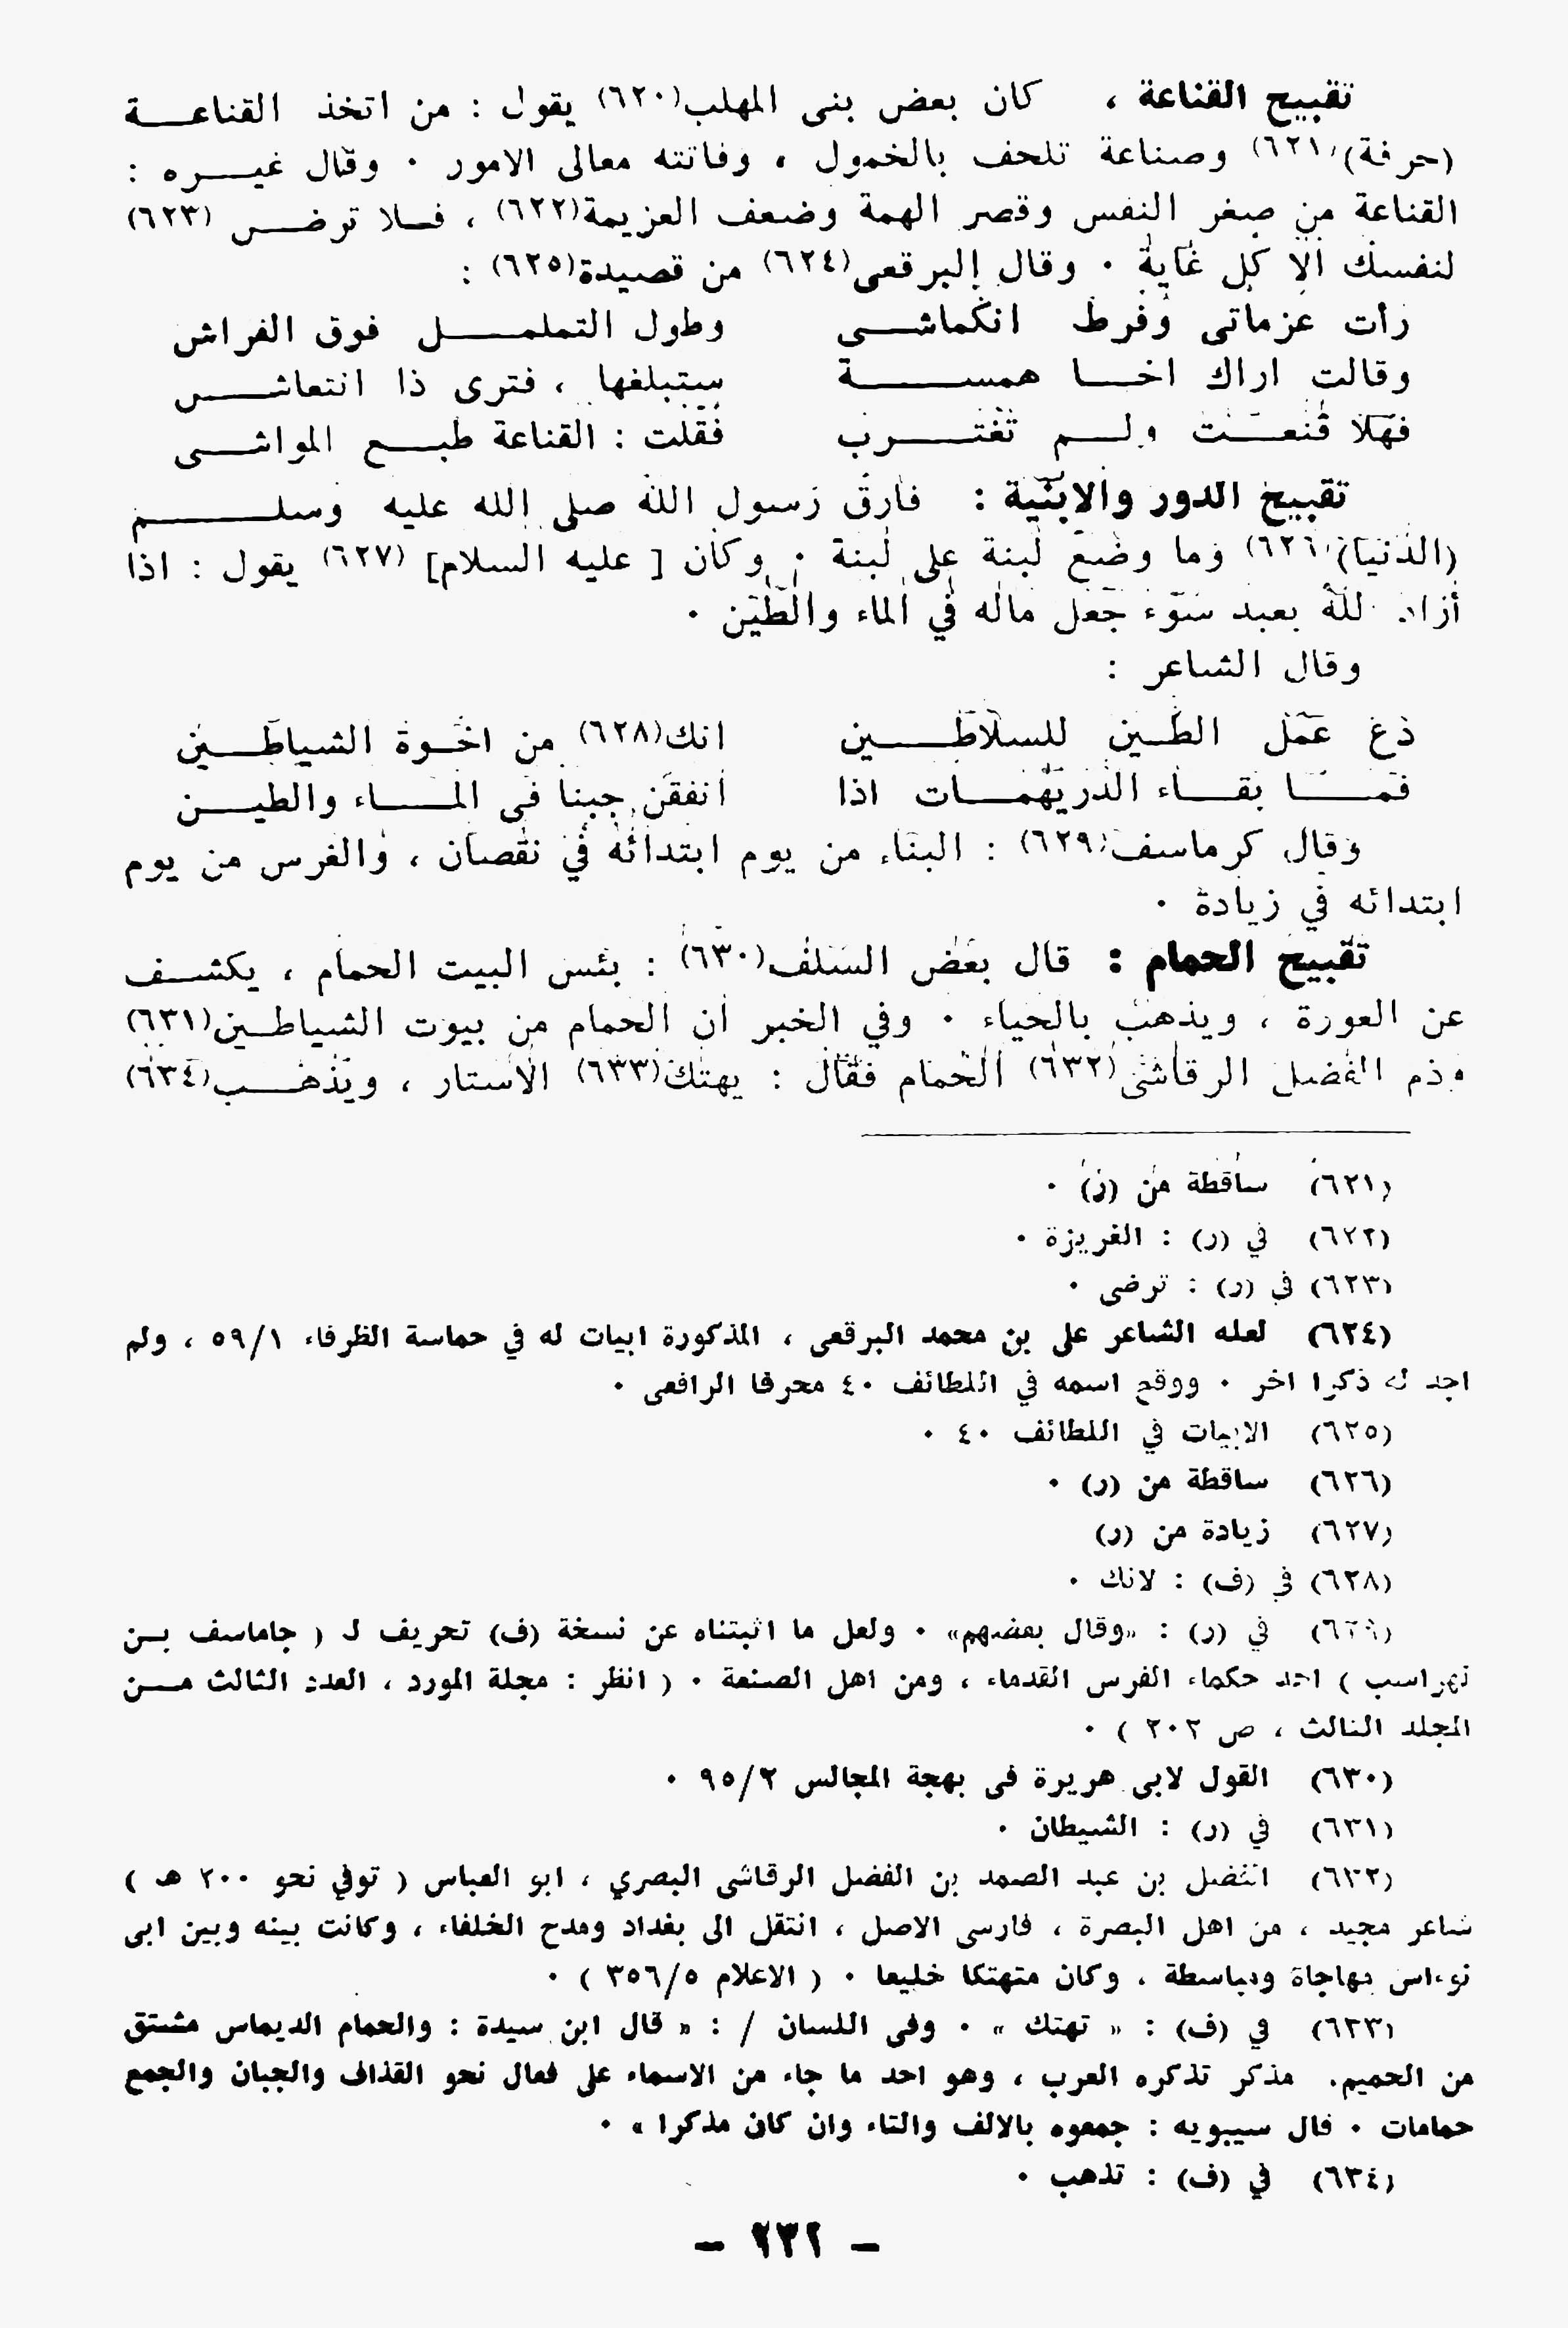 تقبيح القناعة ، كان بعض بنى المهلب(٦٢٠) يقول : من اتخذ القناعـــة
(حرفة)(٦٢١) وصناعة تلحف بالخمول ، وفاتته معالى الامور . وقال غيـــره :
القناعة من صغر النفس وقصر الهمة وضعف العزيمة(٦٢٢) ، فـلا ترضـــى (٦٢٣)
لنفسك الا كل غاية . وقال البرقعى(٦٢٤) من قصيدة(٦٢٥) :
رأت عزماتى وفرط انكماشـــى وطول التململـــــل فوق الفراش
وقالت اراك اخـــا همســـــة سيتبلغها ، فترى ذا انتعاشـــى
فهلا قنعـــت ولـــم تغتـــرب فقلت : القناعة طبـــع المواشـــى
تقبيح الدور والابنية : فارق رسول الله صلى الله عليه وسلـــــم
(الدنيا)(٦٢٦) وما وضع لبنة على لبنة . وكان [ عليه السلام] (٦٢٧) يقول : اذا
أراد الله بعبد سوء جعل ماله في الماء والطين .
وقال الشاعر :
دع عمل الطـين للسلاطـــــين انك(٦٢٨) من اخـوة الشياطـــين
فمـــا بقـــاء الدريهمـــات اذا أنفقن جبنا فى المـــاء والطيـــن
وقال كرماسف(٦٢٩) : البناء من يوم ابتدائه في نقصان ، والغرس من يوم
ابتدائه في زيادة .
تقبيح الحمام : قال بعض السلف(٦٣٠) : بئس البيت الحمام ، يكشـــف
عن العورة ، ويذهب بالحياء . وفي الخبر ان الحمام من بيوت الشياطـين(٦٣١)
وذم الفضل الرقاشى(٦٣٢) الحمام فقال : يهتك(٦٣٣) الأستار ، ويذهـــب(٦٣٤)
(٦٢١) ساقطة من (ر) .
(٦٢٢) في (ر) : الغريزة .
(٦٢٣) في (ر) : ترضى .
(٦٢٤) لعله الشاعر على بن محمد البرقعى ، المذكورة ابيات له في حماسة الظرفاء ٥٩/١ ، ولم
اجد له ذكرا اخر . ووقع اسمه في اللطائف ٤٠ محرفا الرافعى .
(٦٢٥) الابيات في اللطائف ٤٠ .
(٦٢٦) ساقطة من (ر) .
(٦٢٧) زيادة من (ر)
(٦٢٨) في (ف) : لانك .
(٦٢٩) في (ر) : «وقال بعضهم» . ولعل ما اثبتناه عن نسخة (ف) تحريف لـ ( جاماسف بـن
لهراسب ) احد حكماء الفرس القدماء ، ومن اهل الصنعة . ( انظر : مجلة المورد ، العدد الثالث مـــن
المجلد الثالث ، ص ٢٠٢ ) .
(٦٣٠) القول لابى هريرة فى بهجة المجالس ٩٥/٢ .
(٦٣١) في (ر) : الشيطان .
(٦٣٢) الفضل بن عبد الصمد بن الفضل الرقاشى البصري ، ابو العباس ( توفي نحو ٢٠٠ هـ )
شاعر مجيد ، من اهل البصرة ، فارسى الاصل ، انتقل الى بغداد ومدح الخلفاء ، وكانت بينه وبين ابى
نوءاس مهاجاة ومباسطة ، وكان متهتكا خليعا . ( الاعلام ٣٥٦/٥ ) .
(٦٣٣) في (ف) : « تهتك » . وفى اللسان / : « قال ابن سيدة : والحمام الديماس مشتق
من الحميم. مذكر تذكره العرب ، وهو احد ما جاء من الاسماء على فعال نحو القذاف والجبان والجمع
حمامات . قال سيبويه : جمعوه بالالف والتاء وان كان مذكرا » .
(٦٣٤) في (ف) : تذهب .
- ٢٣٢ -